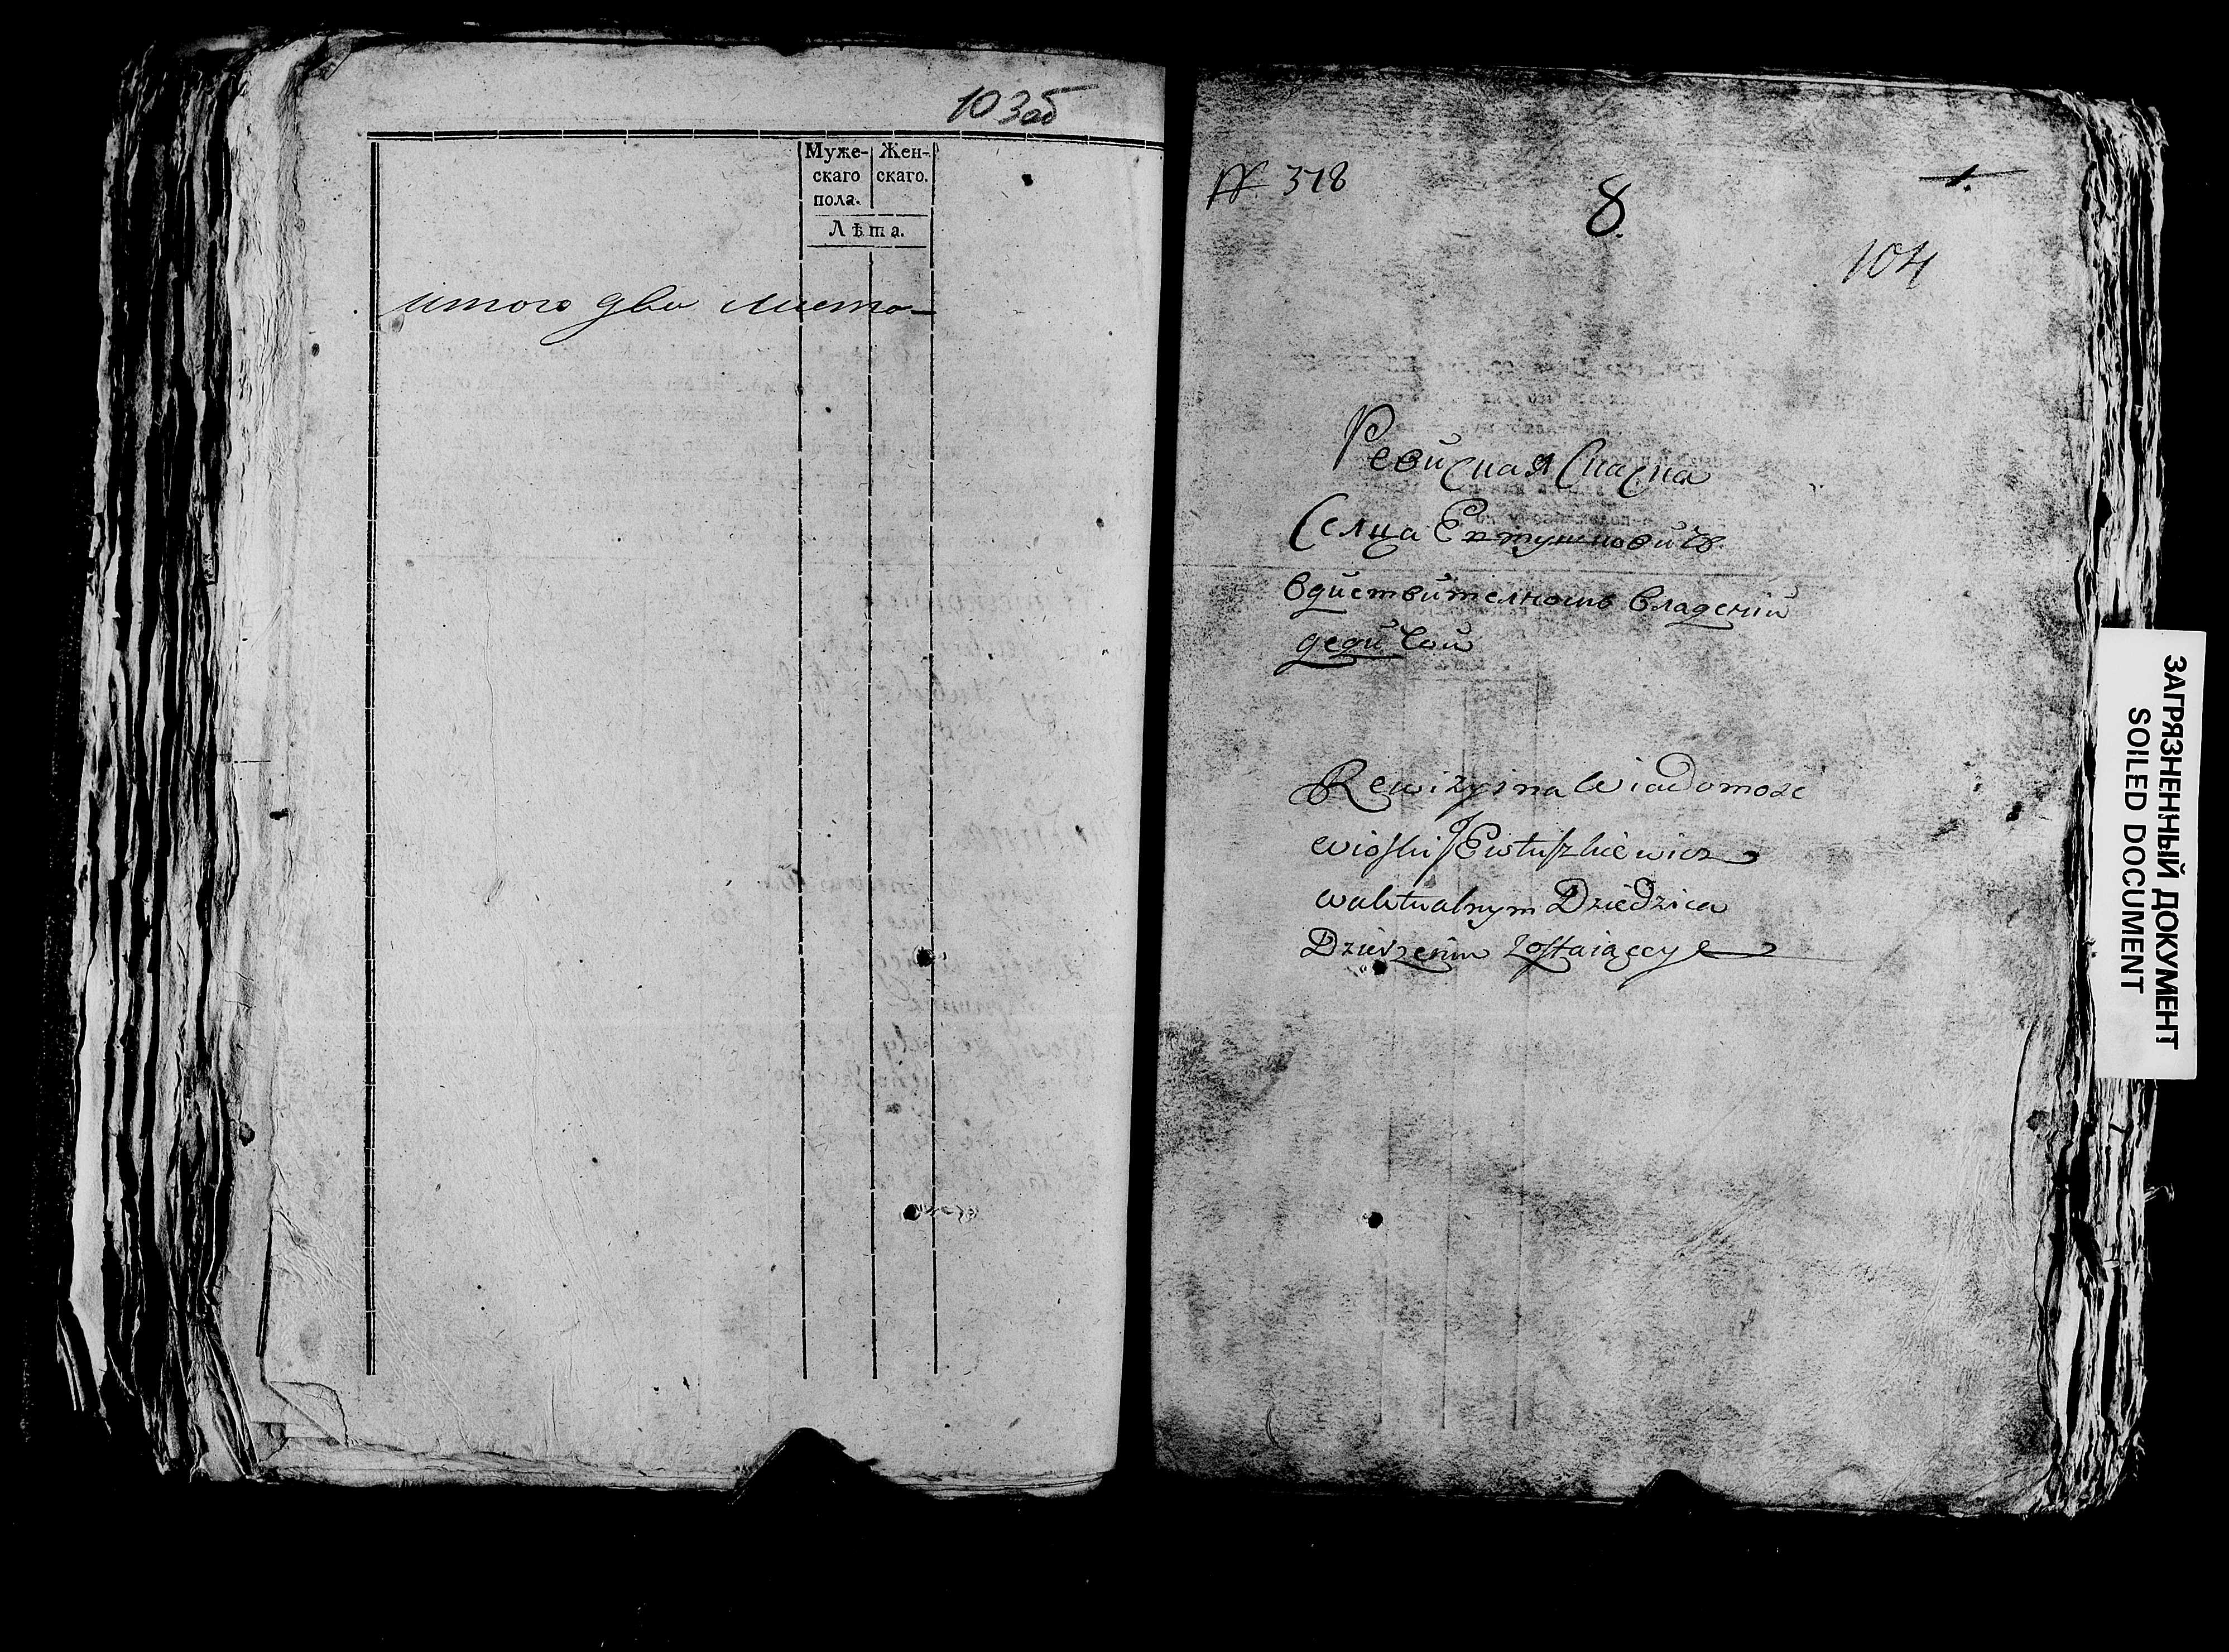 103об
Муже- Жен-
скаго скаго.
пола.
Лѣта.
итого два листа
№ 378
8
1.
104
Ревиская Скаска
Селца Евтушковичъ
вдиствителномъ владении
дедичои
Rewizyina Wiadomosc
wioski Ewtuszkiewicz
w aktualnym Dziedzica
Dzierzeniu Zostaiąccye
ЗАГРЯЗНЕННЫЙ ДОКУМЕНТ
SOILED DOCUMENT